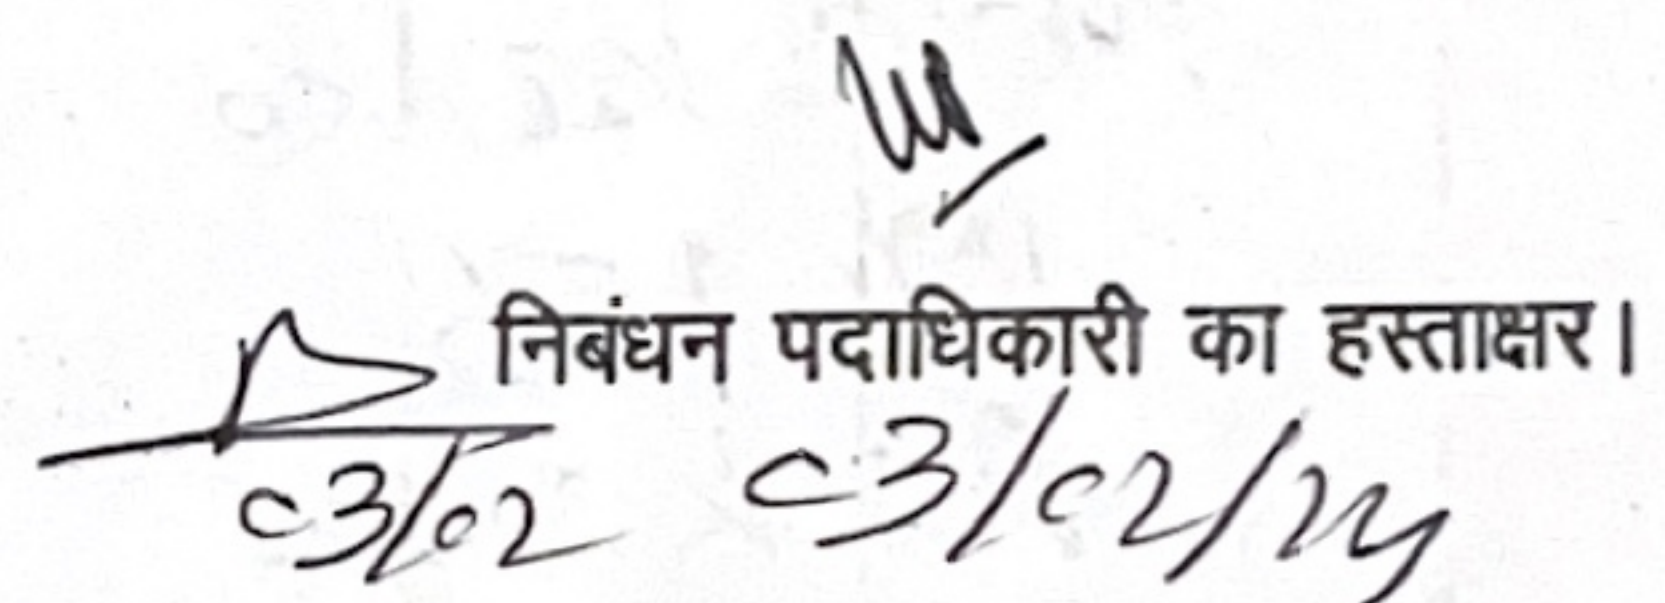 निबंधन पदाधिकारी का हस्ताक्षर।
03/02 03/02/24